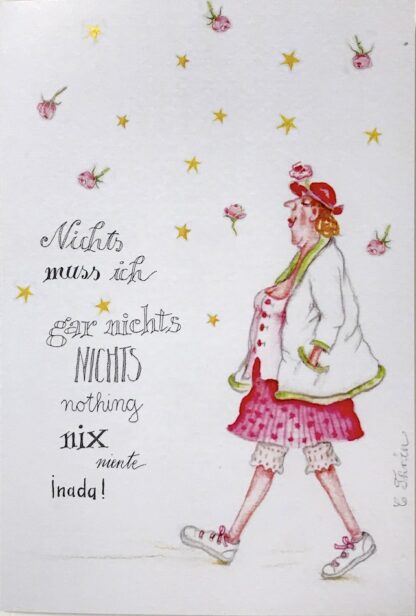 Nichts
muss ich
gar nichts
NICHTS
nothing
nix
niente
inada!